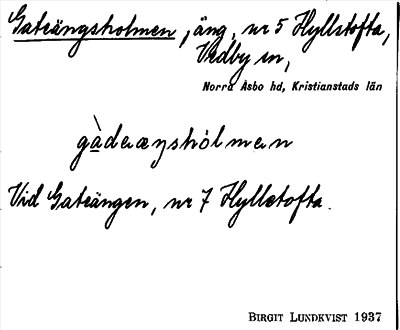 Gateängsholmen, äng, nr 5 Hyllstofta,
Vedby sn,
Norra Åsbo hd, Kristianstads län
gàdeæŋshòlmen
Vid Gateängen, nr 7 Hyllstofta.
BIRGIT LUNDKVIST 1937